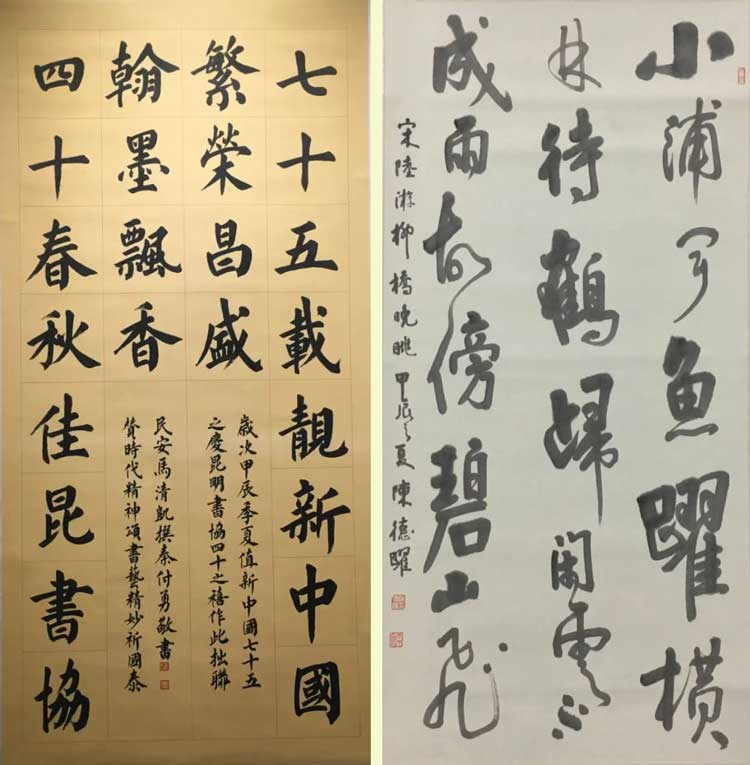 七十五載靚新中國
繁榮昌盛
四十春秋佳昆書協
翰墨飄香
歲次甲辰季夏值新中國七十五
之慶昆明書協四十之禧作此拙聯
贊時代精神頌書藝精妙祈國泰
民安馬清凱撰秦付勇敬書
小浦聞魚躍橫
林待鶴歸閑雲不
成雨故傍碧山飛
宋陸游柳橋晚眺甲辰之夏陳德躍